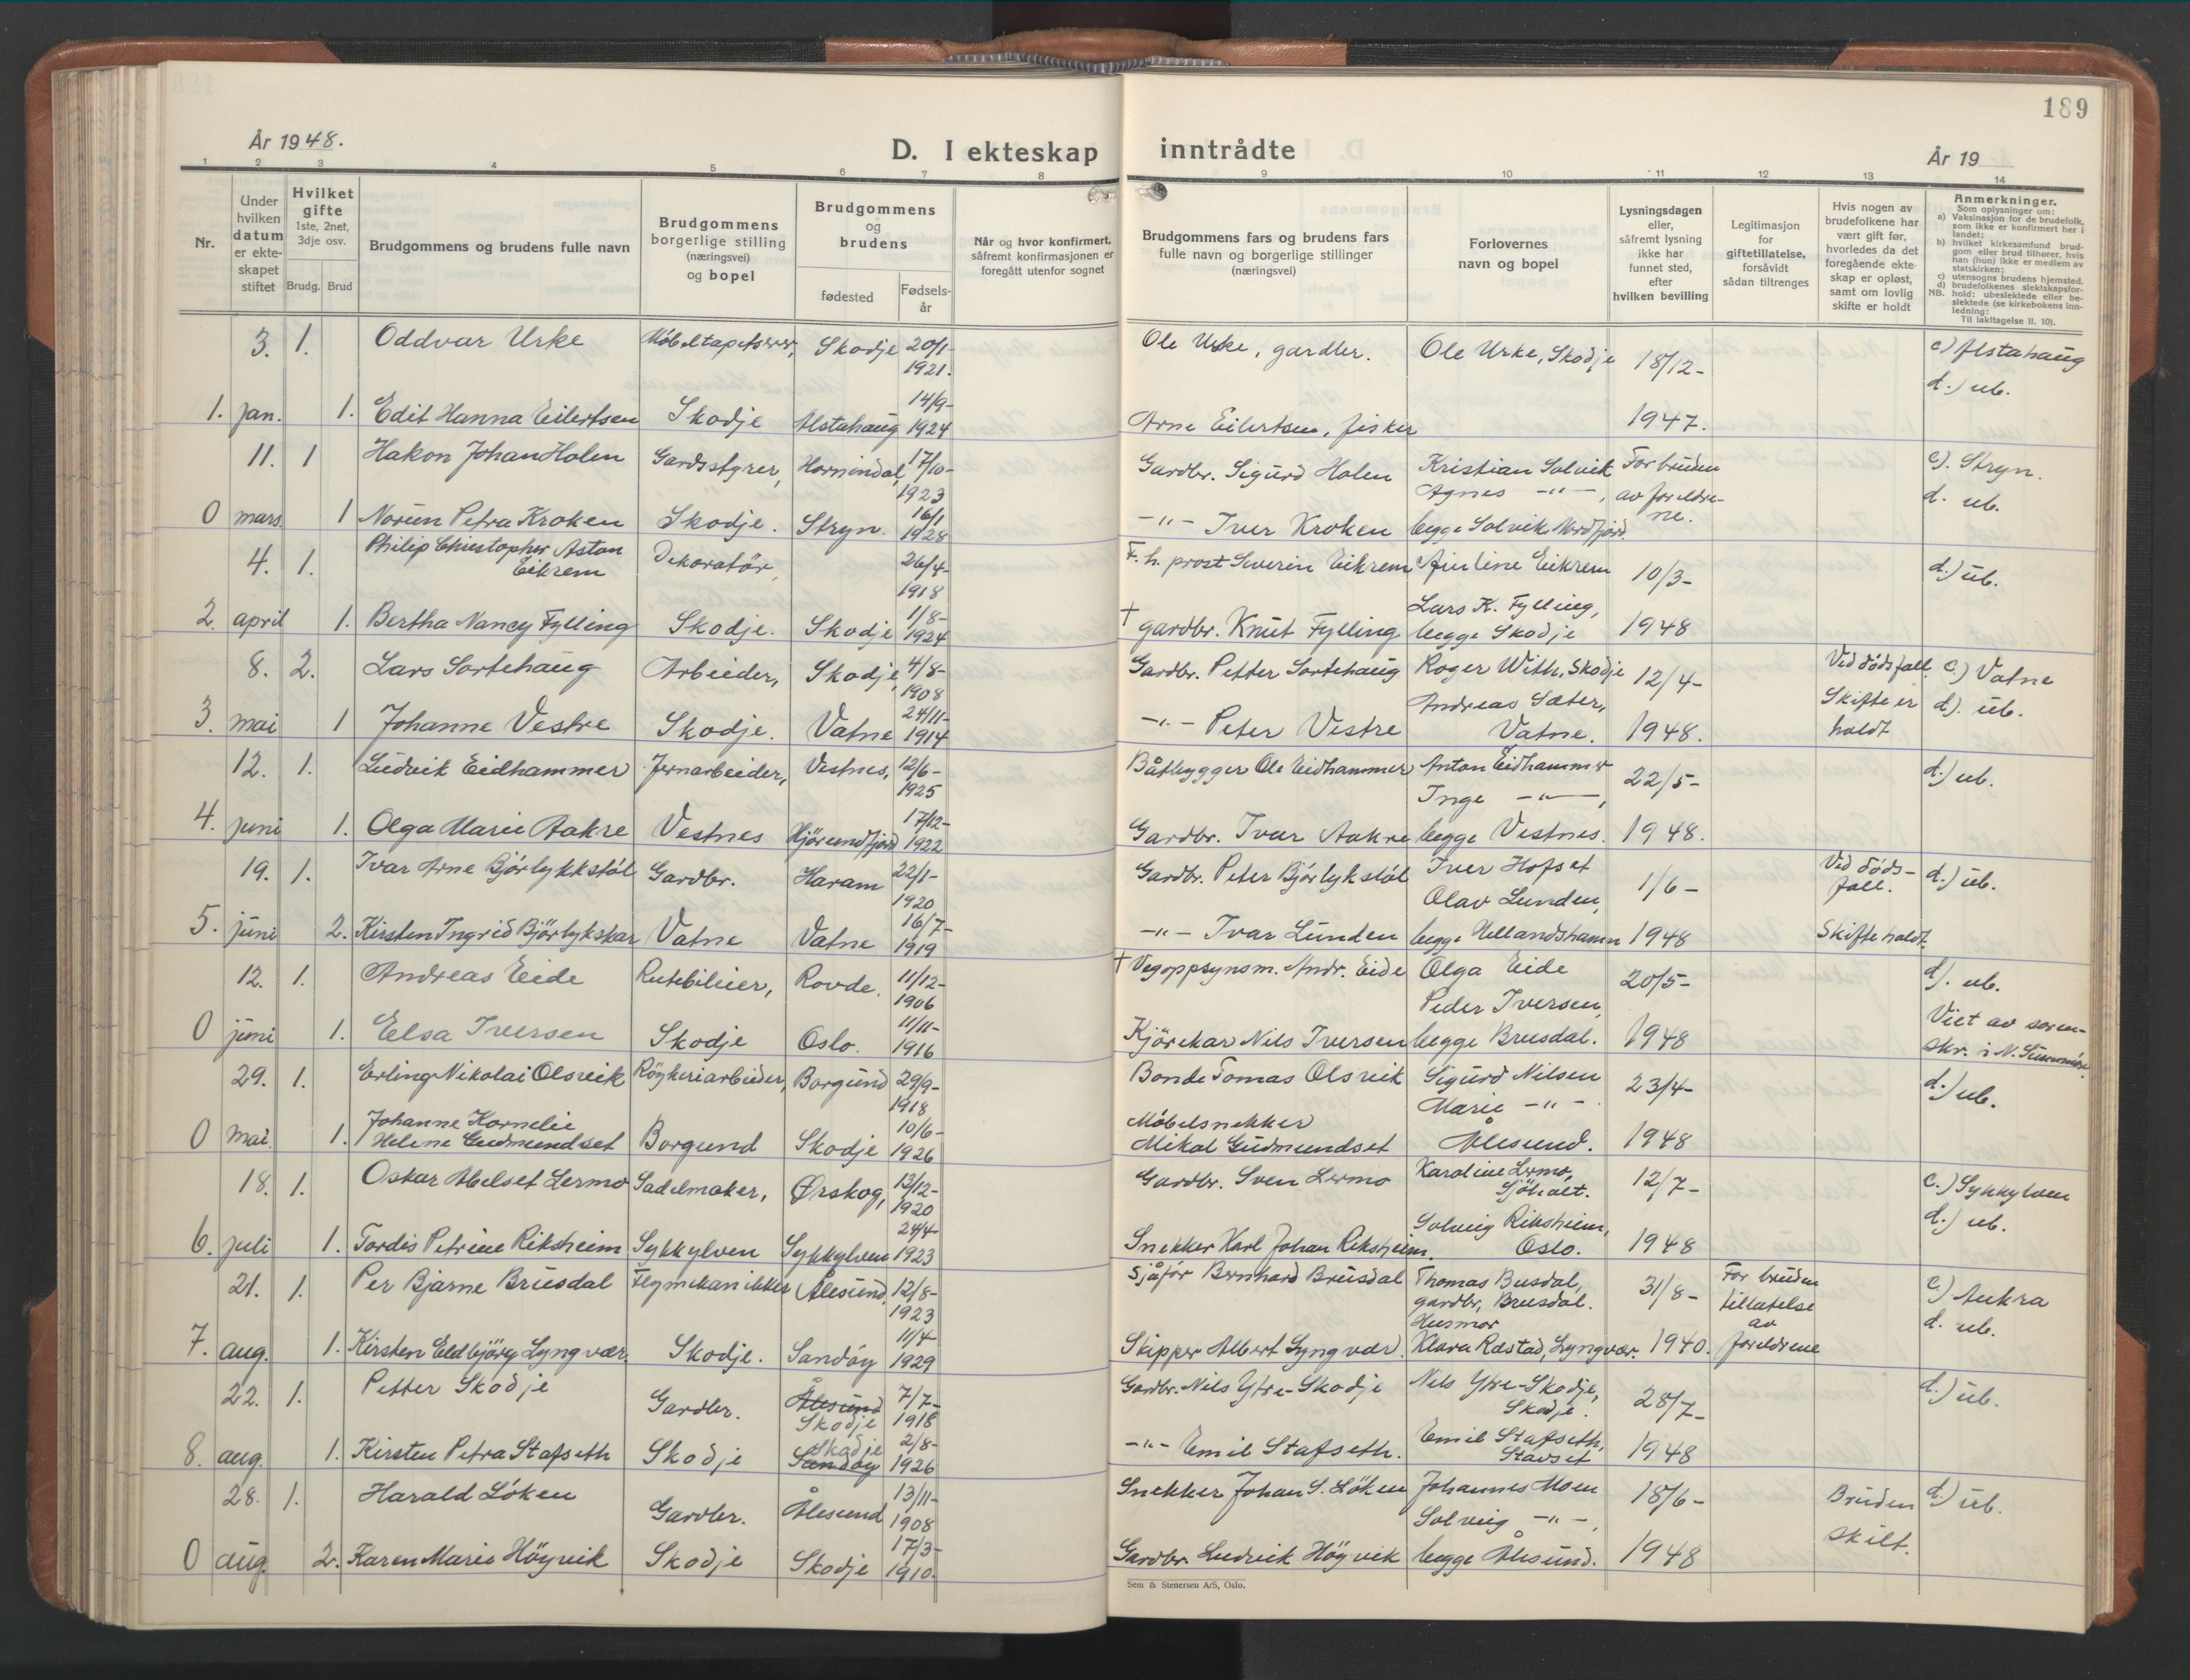 189
År 1948.
D. I ekteskap inntrådte
År 19
1 2 3 4 5 6 7 8 9 10 11 12 13 14
Nr.
Under hvilken datum er ekteskapet stiftet
Hvilket gifte 1ste, 2net, 3dje osv.
Brudg. Brud
Brudgommens og brudens fulle navn
Brudgommens borgerlige stilling (næringsvei) og bopel
Brudgommens og brudens
fødested
Fødselsår
Når og hvor konfirmert, såfremt konfirmasjonen er foregått utenfor sognet
Brudgommens fars og brudens fars fulle navn og borgerlige stillinger (næringsvei)
Forlovernes navn og bopel
Lysningsdagen eller, såfremt lysning ikke har funnet sted, efter hvilken bevilling
Legitimasjon for giftetillatelse, forsåvidt sådan tiltrenges
Hvis nogen av brudefolkene har vært gift før, hvorledes da det foregående ekteskap er opløst, samt om lovlig skifte er holdt
Anmerkninger.
Som oplysninger om:
a) Vaksinasjon for de brudefolk, som ikke er konfirmert her i landet;
b) hvilket kirkesamfund brudgom eller brud tilhører, hvis han (hun) ikke er medlem av statskirken;
c) utensogns brudens hjemsted.
d) brudefolkenes slektskapsforhold: ubeslektede eller beslektede (se kirkebokens innledning:
NB.
Til iakttagelse II. 10).
3. 1. Oddvar Urke Møbeltapetserer, Skodje 20/1- 1921. Ole Urke, gardbr. Ole Urke, Skodje 18/12- c) Alstahaug
d.) ub.
1. jan. 1. Edit Hanna Eilertsen Skodje Alstahaug 14/9- 1924 Arne Eilertsen, fisker 1947.
11. 1 Hakon Johan Holen Gardsstyrer, Hornindal, 17/10- 1923 Gardbr. Sigurd Holen Kristian Solvik For bruden c). Stryn.
Agnes -"-, av foreldrene. d. ub.
0 mars 1 Noren Petra Kroken Skodje. Stryn. 16/1 1928 -"- Iver Kroken begge Solvik, Nordfjord.
4. 1. Philip Christopher Aston Eikrem Dekoratør, 26/4- 1918 F.h. prost Severin Eikrem Eikrem 10/3- d.) ub.
Lars K. Fylling,
2. april 1. Bertha Nancy Fylling Skodje. Skodje 1/8- 1924 † gardbr. Knut Fylling begge Skodje 1948
8. 2. Lars Sortehaug Arbeider, Skodje, 4/8- 1908 Gardbr. Petter Sortehaug Roger With, Skodje 12/4- Ved dødsfall. c.) Vatne
Andreas Sæter, Skifte er d). ub.
3. mai 1 Johanne Vestre Skodje. Vatne 24/11- 1914 -"- Peter Vestre Vatne. 1948. holdt
12. 1. Ludvik Eidhammer Jernarbeider, Vestnes, 12/6- 1925 Båtbygger Ole Eidhammer Anton Eidhammer 22/5- d.) ub.
Inge -"-,
4. juni 1. Olga Marie Aakre Vestnes Hjørundfjord 17/12- 1922 Gardbr. Ivar Aakre begge Vestnes. 1948.
19. 1. Ivar Arne Bjørlykkstøl Gardbr. Haram 22/1- 1920 Gardbr. Peter Bjørlykstøl Iver Hofset 1/6- Ved dødsfall. d.) ub.
Olav Lunden,
5. juni 2. Kirsten Ingrid Bjørlykskar Vatne Vatne 16/7- 1919 -"- Ivar Lunden begge Hellandshamn 1948 Skifte holdt.
12. 1. Andreas Eide Rutebileier, Rovde. 11/12- 1906 † Vegoppsynsm. Andr. Eide Olga Eide 20/5- d). ub.
Peder Iversen, Viet av soren-
0 juni 1. Elsa Iversen Skodje Oslo. 11/11- 1916 Kjørekar Nils Iversen begge Brusdal. 1948 skr. i N. Sunnmøre.
29. 1. Erling Nikolai Olsvik Røykeriarbeider, Borgund 29/9- 1918 Bonde Tomas Olsvik Sigurd Nilsen 23/4- d.) ub.
Marie -"-.
0 mai. 1. Johanne Kornelie Helene Gudmundset Borgund Skodje 10/6- 1926 Møbelsnekker Mikal Gudmundset Ålesund. 1948
18. 1. Oskar Abelset Lermo Sadelmaker, Ørskog, 13/12- 1920 Gardbr. Sven Lermo Karoline Lermo, Sjøholt. 12/7- c.) Sykkylven
Solveig Riksheim, d.) ub.
6. juli 1. Tordis Petrine Riksheim Sykkylven Sykkylven 24/4- 1923 Snekker Karl Johan Riksheim. Oslo. 1948
21. 1. Per Bjarne Brusdal Flymekanikker Ålesund, 12/8- 1923 Sjåfør Bernhard Brusdal Thomas Busdal, gardbr, Brusdal. 31/8- For bruden tillatelse c.) Aukra
Husmor av d. ub.
7. aug. 1. Kirsten Eldbjørg Lyngvær. Skodje. Sandøy 11/4- 1929 Skipper Albert Lyngvær. Klara Røstad, Lyngvær. 1940. foreldrene
22. 1. Petter Skodje Gardbr. Ålesund Skodje 7/7- 1918 Gardbr. Nils Ytre-Skodje Nils Ytre-Skodje, Skodje. 28/7- d.) ub.
8. aug. 1. Kirsten Petra Stafseth Skodje Skodje Sandøy 2/8- 1926 -"- Emil Stafseth. Emil Stafseth, Stavset 1948
28. 1. Harald Løken Gardbr. Ålesund 13/11- 1908 Snekker Johan S. Løken Johannes Moen 18/6- Bruden d.) ub.
Solveig -"-, skilt.
0 aug. 2. Karen Marie Høyvik Skodje Skodje 17/3- 1910. Gardbr. Ludvik Høyvik begge Ålesund. 1948
Sem & Stenersen A/S, Oslo.